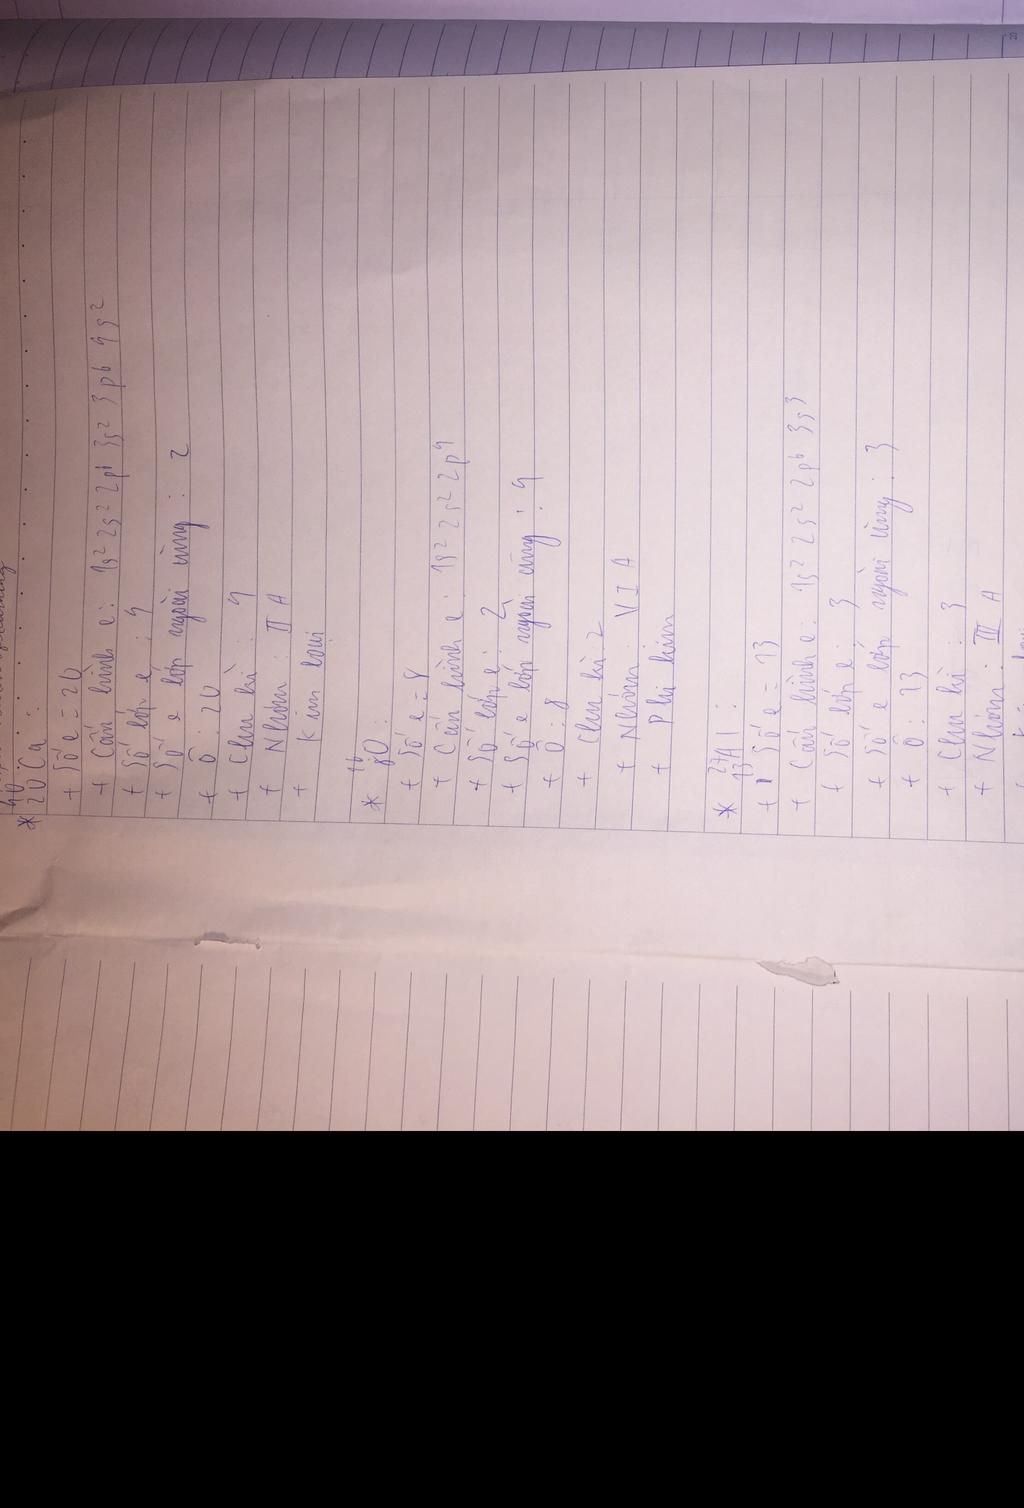 * ⁴⁰₂₀Ca :
+ Số e = 20
+ Cấu hình e: 1s² 2s² 2p⁶ 3s² 3p⁶ 4s²
+ Số lớp e : 4
+ Số e lớp ngoài cùng : 2
+ Ô : 20
+ Chu kì : 4
+ Nhóm : II A
+ Kim loại
* ¹⁶₈O :
+ Số e = 8
+ Cấu hình e : 1s² 2s² 2p⁴
+ Số lớp e : 2
+ Số e lớp ngoài cùng : 4
+ Ô : 8
+ Chu kì : 2
+ Nhóm : VI A
+ Phi kim
* ²⁷₁₃Al :
+ Số e = 13
+ Cấu hình e : 1s² 2s² 2p⁶ 3s³
+ Số lớp e : 3
+ Số e lớp ngoài cùng : 3
+ Ô : 13
+ Chu kì : 3
+ Nhóm : III A